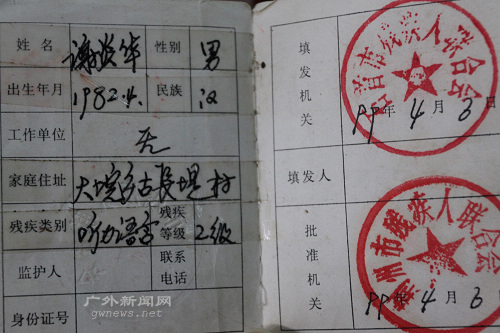 姓名 谢 华 性别 男
出生年月 1982.4. 民族 汉
工作单位 无
家庭住址 大垸 古长堤村
残疾类别 听力语言 残疾等级 2级
监护人 联系电话
身份证号
广外新闻网
gwnews.net
填发机关
石首市残疾人联合会
99年4月3日
填发人
批准机关
荆州市残疾人联合会
99年4月3日